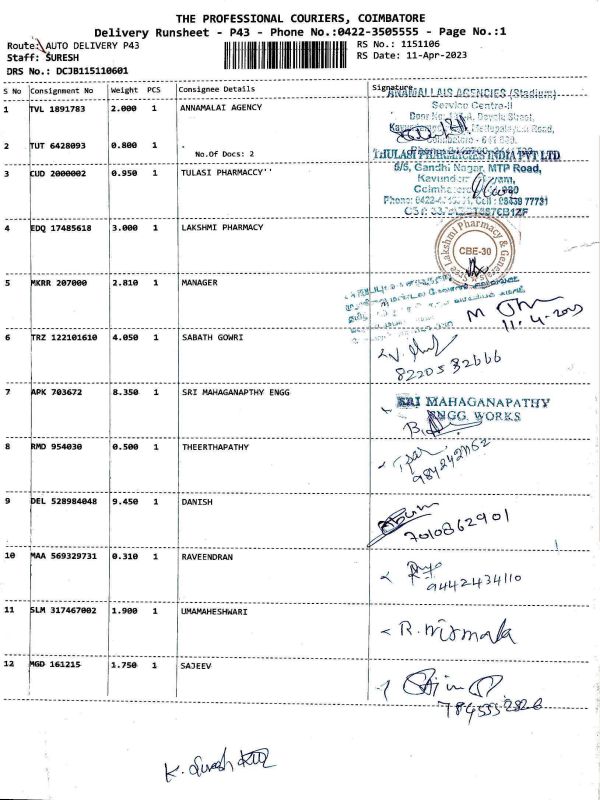 THE PROFESSIONAL COURIERS, COIMBATORE
Delivery Runsheet - P43 - Phone No.:0422-3505555 - Page No.:1
Route: AUTO DELIVERY P43
RS No.: 1151106
Staff: SURESH
RS Date: 11-Apr-2023
DRS No.: DCJB115110601
S No Consignment No Weight PCS Consignee Details Signature
1 TVL 1891783 2.000 1 ANNAMALAI AGENCY
ANAMALLAIS AGENCIES (Stadium)
Service Centre-II
2 TUT 6428093 0.800 1 .
No.Of Docs: 2
THULASI PHARMACIES INDIA PVT LTD
3 CUD 2000002 0.950 1 TULASI PHARMACCY''
5/5, Gandhi Nagar, MTP Road,
4 EDQ 17485618 3.000 1 LAKSHMI PHARMACY
Lakshmi Pharmacy &
CBE-30
5 MKRR 207000 2.810 1 MANAGER
11.4.2023
6 TRZ 122101610 4.050 1 SABATH GOWRI
8220532666
7 APK 703672 8.350 1 SRI MAHAGANAPTHY ENGG
SRI MAHAGANAPATHY
ENGG. WORKS
8 RMD 954030 0.500 1 THEERTHAPATHY
9 DEL 528984048 9.450 1 DANISH
7010862901
10 MAA 569329731 0.310 1 RAVEENDRAN
9442434110
11 SLM 317467002 1.900 1 UMAMAHESHWARI
R. Nirmala
12 MGD 161215 1.750 1 SAJEEV